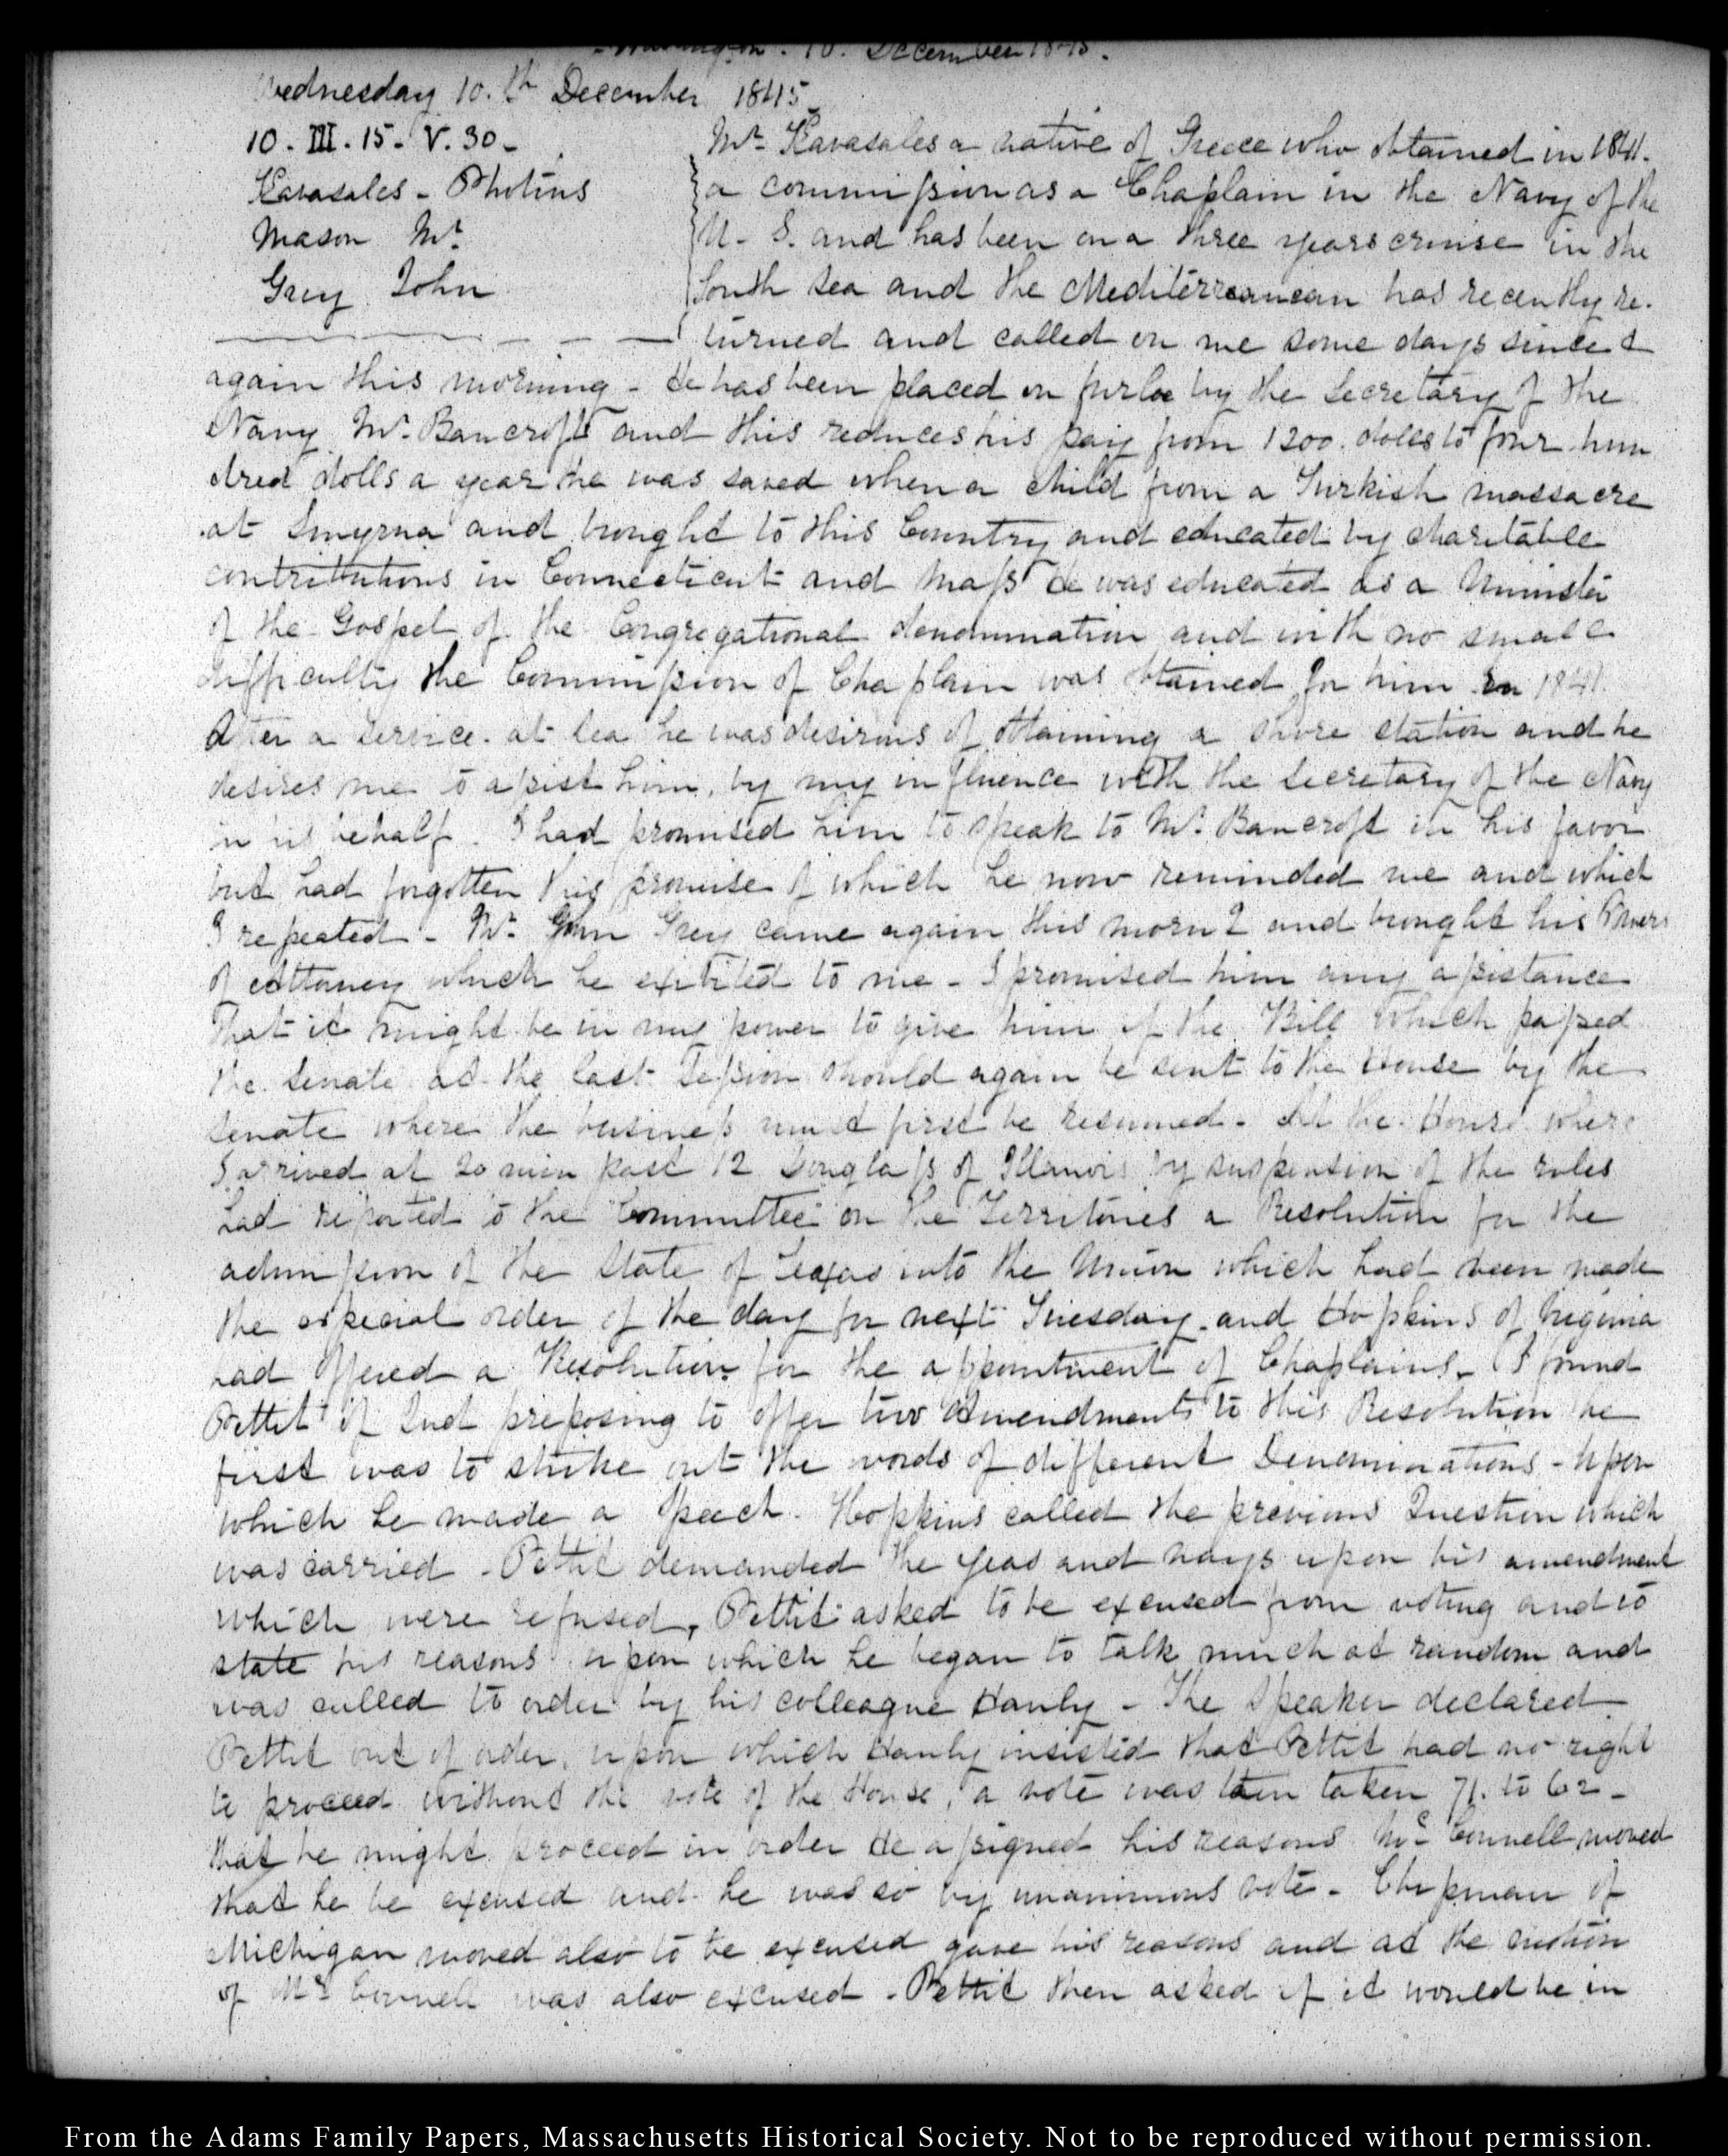 Washington. 10. December 1845.
Wednesday 10.th December 1845
10. III. 15. V. 30.
Kavasales - Photius
Mason Mr.
Grey John
Mr. Kavasales a native of Greece who obtained in 1841.
a commission as a Chaplain in the Navy of the
U. S. and has been on a three years cruise in the
South Sea and the Mediterranean has recently re.
turned and called on me some days since &
again this morning - He has been placed on furloe by the Secretary of the
Navy Mr. Bancroft and this reduces his pay from 1200. dolls to four hun
dred dolls a year he was saved when a child from a Turkish massacre
at Smyrna and brought to this Country and educated by charitable
contributions in Connecticut and Mass He was educated as a Minister
of the Gospel of the Congregational denomination and with no small
difficulty the Commission of Chaplain was obtained for him in 1841.
After a service at Sea he was desirous of obtaining a shore station and he
desires me to assist him, by my influence with the Secretary of the Navy
in his behalf. I had promised him to speak to Mr. Bancroft in his favor
but had forgotten this promise of which he now reminded me and which
I repeated - Mr. John Grey came again this morng and brought his Powers
of Attorney which he exhibited to me - I promised him any assistance
that it might be in my power to give him if the Bill which passed
the Senate at the last Session should again be sent to the House by the
Senate where the business must first be resumed. At the House where
I arrived at 20 min past 12 Douglass of Illinois by suspension of the rules
had reported to the Committee on the Territories a Resolution for the
admission of the State of Texas into the Union which had been made
the especial order of the day for next Tuesday and Hopkins of Virginia
had offered a Resolution for the appointment of Chaplains - I found
Pettit of Ind preposing to offer two Amendments to this Resolution the
first was to strike out the words of different Denominations - Upon
which he made a Speech. Hopkins called the previous Question which
was carried - Pettit demanded the yeas and nays upon his amendment
which were refused, Pettit asked to be excused from voting and to
state his reasons upon which he began to talk much at random and
was called to order by his colleague Henly - The Speaker declared
Pettit out of order, upon which Henly insisted that Pettit had no right
to proceed without the vote of the House, a vote was then taken 71. to 62 -
that he might proceed in order He assigned his reasons Mc. Connell moved
that he be excused and he was so by unanimous vote - Chipman of
Michigan moved also to be excused gave his reasons and at the motion
of Mc Connell was also excused - Pettit then asked if it would be in
From the Adams Family Papers, Massachusetts Historical Society. Not to be reproduced without permission.